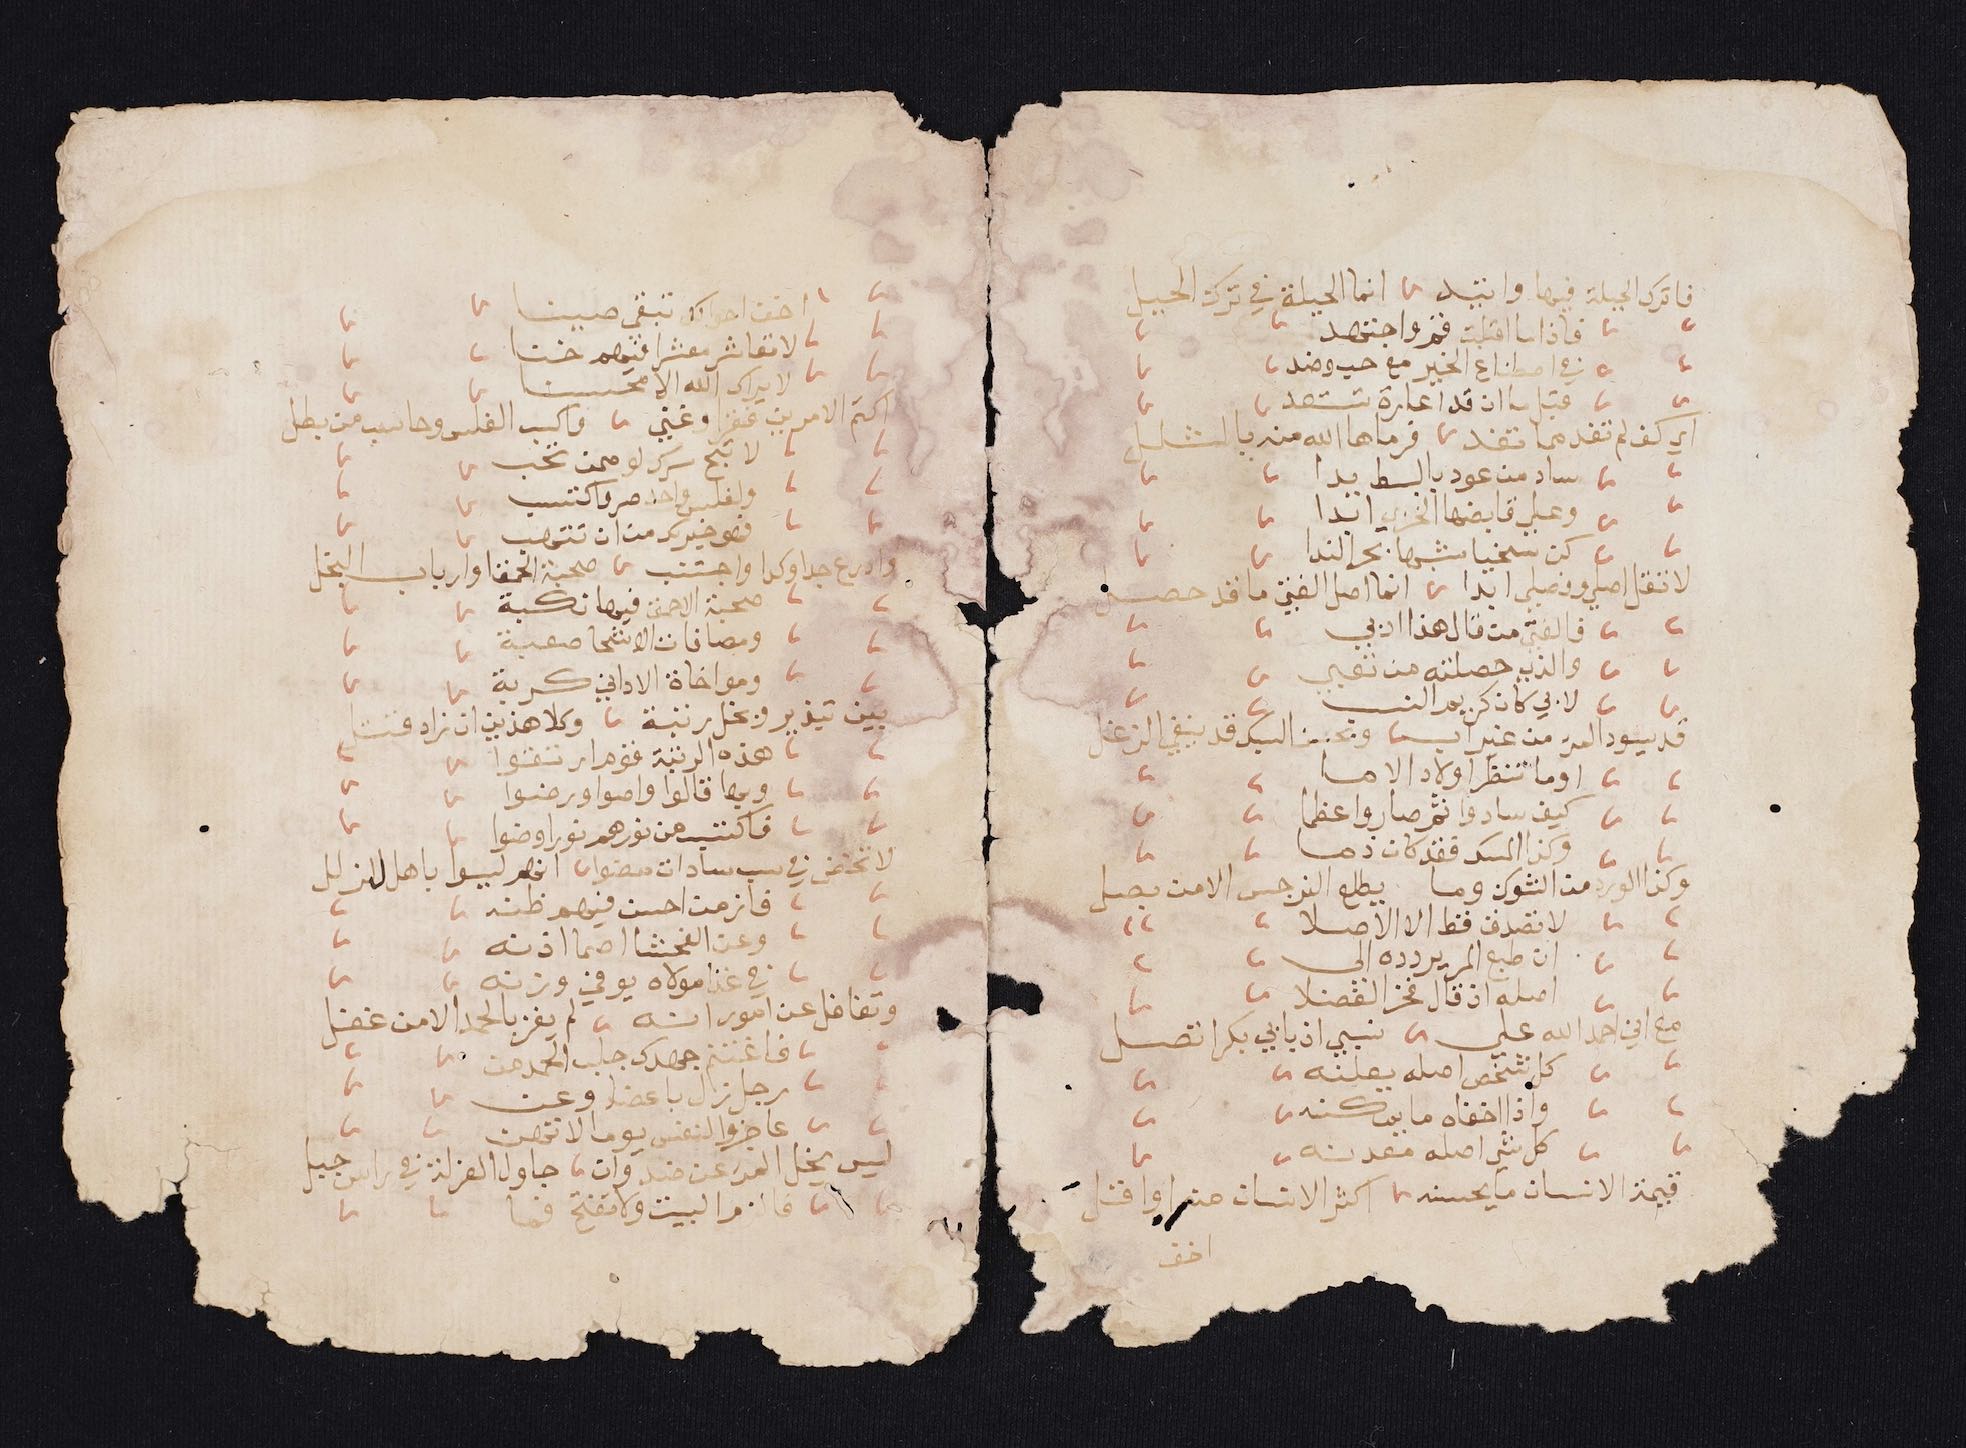 فاترك الحيلة فيها واتيد انما الحيلة في ترك الحيل
فاذا ما اقبلت قم واجتهد
في اصطناع الخير مع حب وضد
قبل ما ان قد اعارة تستعد
اي كف لم تفد مما تفد فرماها الله منه بالشلل
ساد من عود بالبسط يدا
وعلي قابضها الخزي ابدا
كن سخيا مشبها بحر الندا
لا تقل اصلي وفصلي ابدا انما اصل الفتي ما قد حصل
فالفتي من قال هذا ادبي
والذي حصلته من تعبي
لا بي كان كريم النسب
قد يسود المرء من غير اب وبحسن السبك قد ينفي الزغل
اوما تنظر اولاد الاما
كيف سادوا ثم صاروا عظما
وكذا السبك فقد كان دما
وكذا الورد من الشوك وما يطلع النرجس الا من بصل
لا تصدق قط الا الاصلا
ان طبع المرء يردده الي
اصله اذ قال فخر الفضلا
مع اني احمد الله علي نسبي اذ بابي بكر اتصل
كل شخص اصله يعلنه
واذا اخفاه ما يمكنه
كل شي اصله معدنه
قيمة الانسان ما يحسنه اكثر الانسان منه او اقل
اخف
اخف احوالك تبقي صينا
لا تعاشر معشرا فيهم خنا
لا يراك الله الا محسنا
اكتم الامرين فقرا وغني واكسب الفلس وحاسب من بطل
لا تبح سرك لو ممن تحب
ولفلس واحد صر واكتسب
فهو خير لك من ان تنتهب
وادرع جدا وكدا واجتنب صحبة الحمقا وارباب البخل
صحبة الاحمق فيها نكبة
ومصافات الاشحا صعبة
ومواخاة الاداني كربة
بين تبذير وبخل رتبة وكلا هذين ان زاد قتل
هذه الرتبة قوم ارتقوا
وبها قالوا واصوا ورضوا
فاكتسب من نورهم نورا وضوا
لا تخض في سب سادات مضوا انهم ليسوا باهل للزلل
فاز من احسن فيهم ظنه
وعن الفحشا اصما اذنه
في غدا مولاه يوفي وزنه
وتغافل عن امور انه لم يفز بالحمد الا من غفل
فاغتنم جهدك جلب الحمد من
رجل زال باعضا وعن
عاجز والنفس يوما لا تهن
ليس يخل المرء عن ضد وان حاول العزلة في راس جبل
فالزم البيت ولا تفتح فما